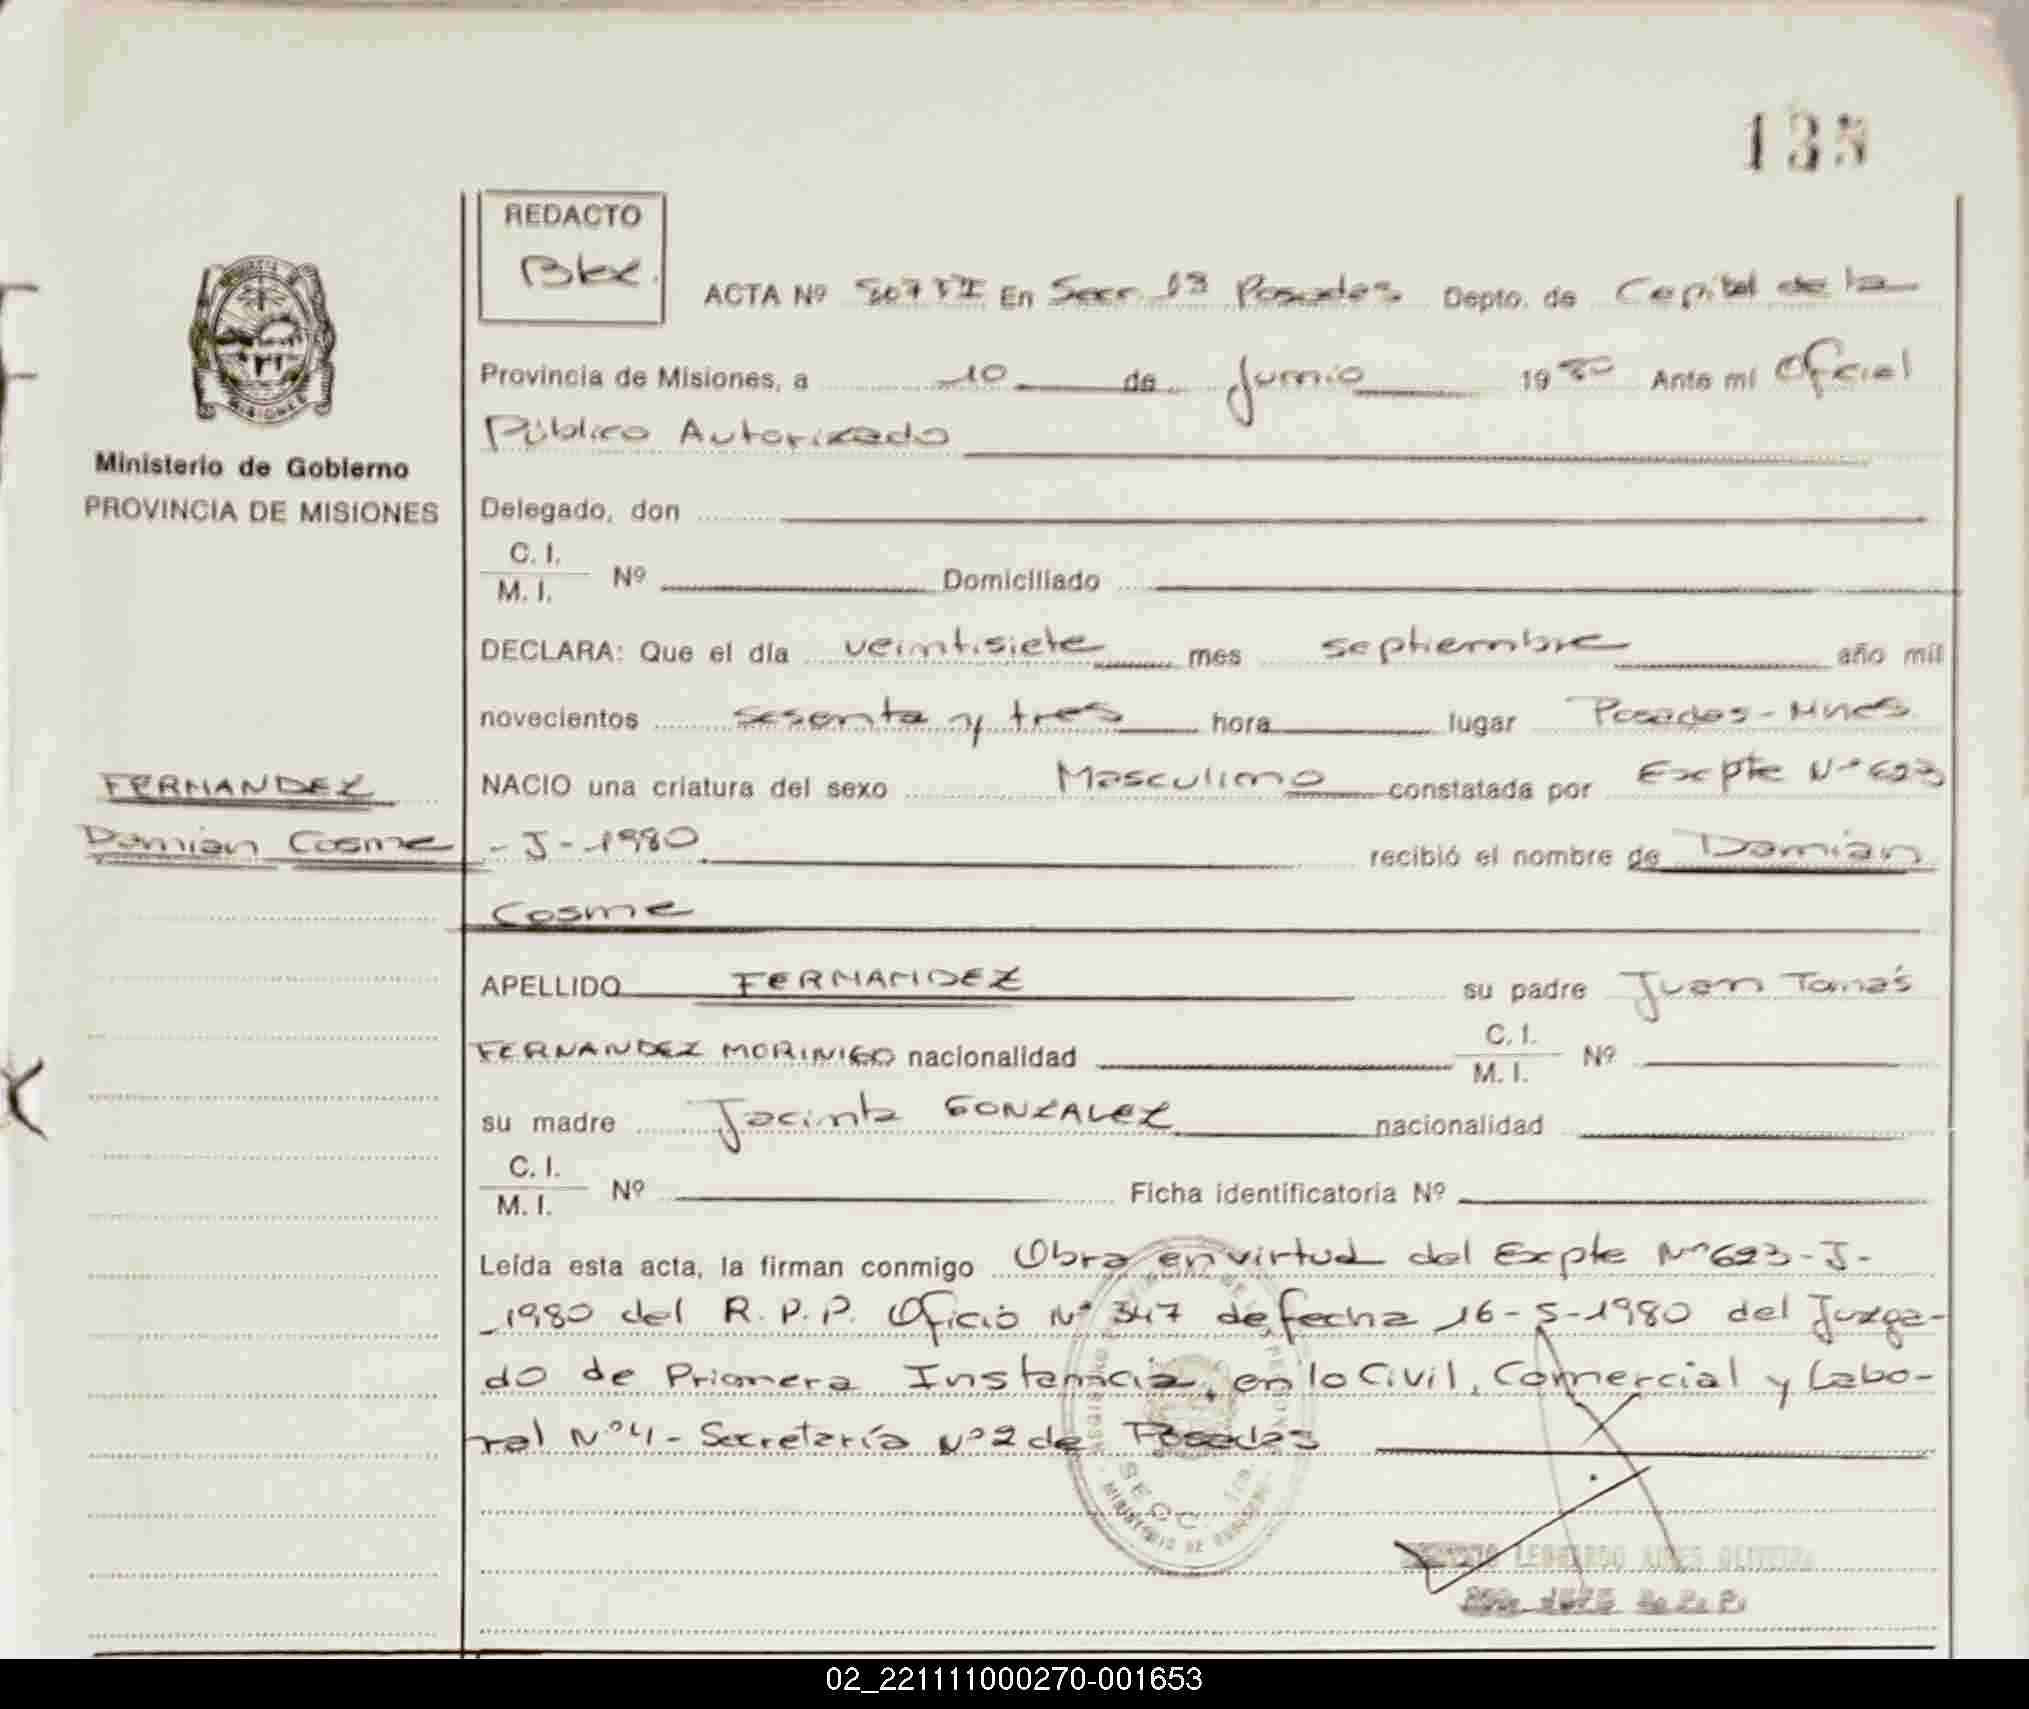 135
REDACTO
ACTA Nº 507 VI En Secc. 1ª Posadas Depto. de Capital de la
Provincia de Misiones, a 10 de Junio 1980 Ante mí Oficial
Público Autorizado
Ministerio de Gobierno
PROVINCIA DE MISIONES
Delegado, don
C. I.
M. I. Nº Domiciliado
DECLARA: Que el día veintisiete mes septiembre año mil
novecientos sesenta y tres hora lugar Posadas - Mnes.
FERNANDEZ
Damián Cosme
NACIO una criatura del sexo Masculino constatada por Expte Nº 623
- J - 1980 recibió el nombre de Damián
Cosme
APELLIDO FERNANDEZ su padre Juan Tomás
FERNANDEZ MORINIGO nacionalidad C. I. M. I. Nº
su madre Jacinta GONZALEZ nacionalidad
C. I.
M. I. Nº Ficha identificatoria Nº
Leída esta acta, la firman conmigo Obra en virtud del Expte Nº 623 - J -
1980 del R. P. P. Oficio Nº 347 de fecha 16 - 5 - 1980 del Juzga-
do de Primera Instancia, en lo Civil, Comercial y Labo-
ral Nº 4 - Secretaría Nº 2 de Posadas
02_221111000270-001653